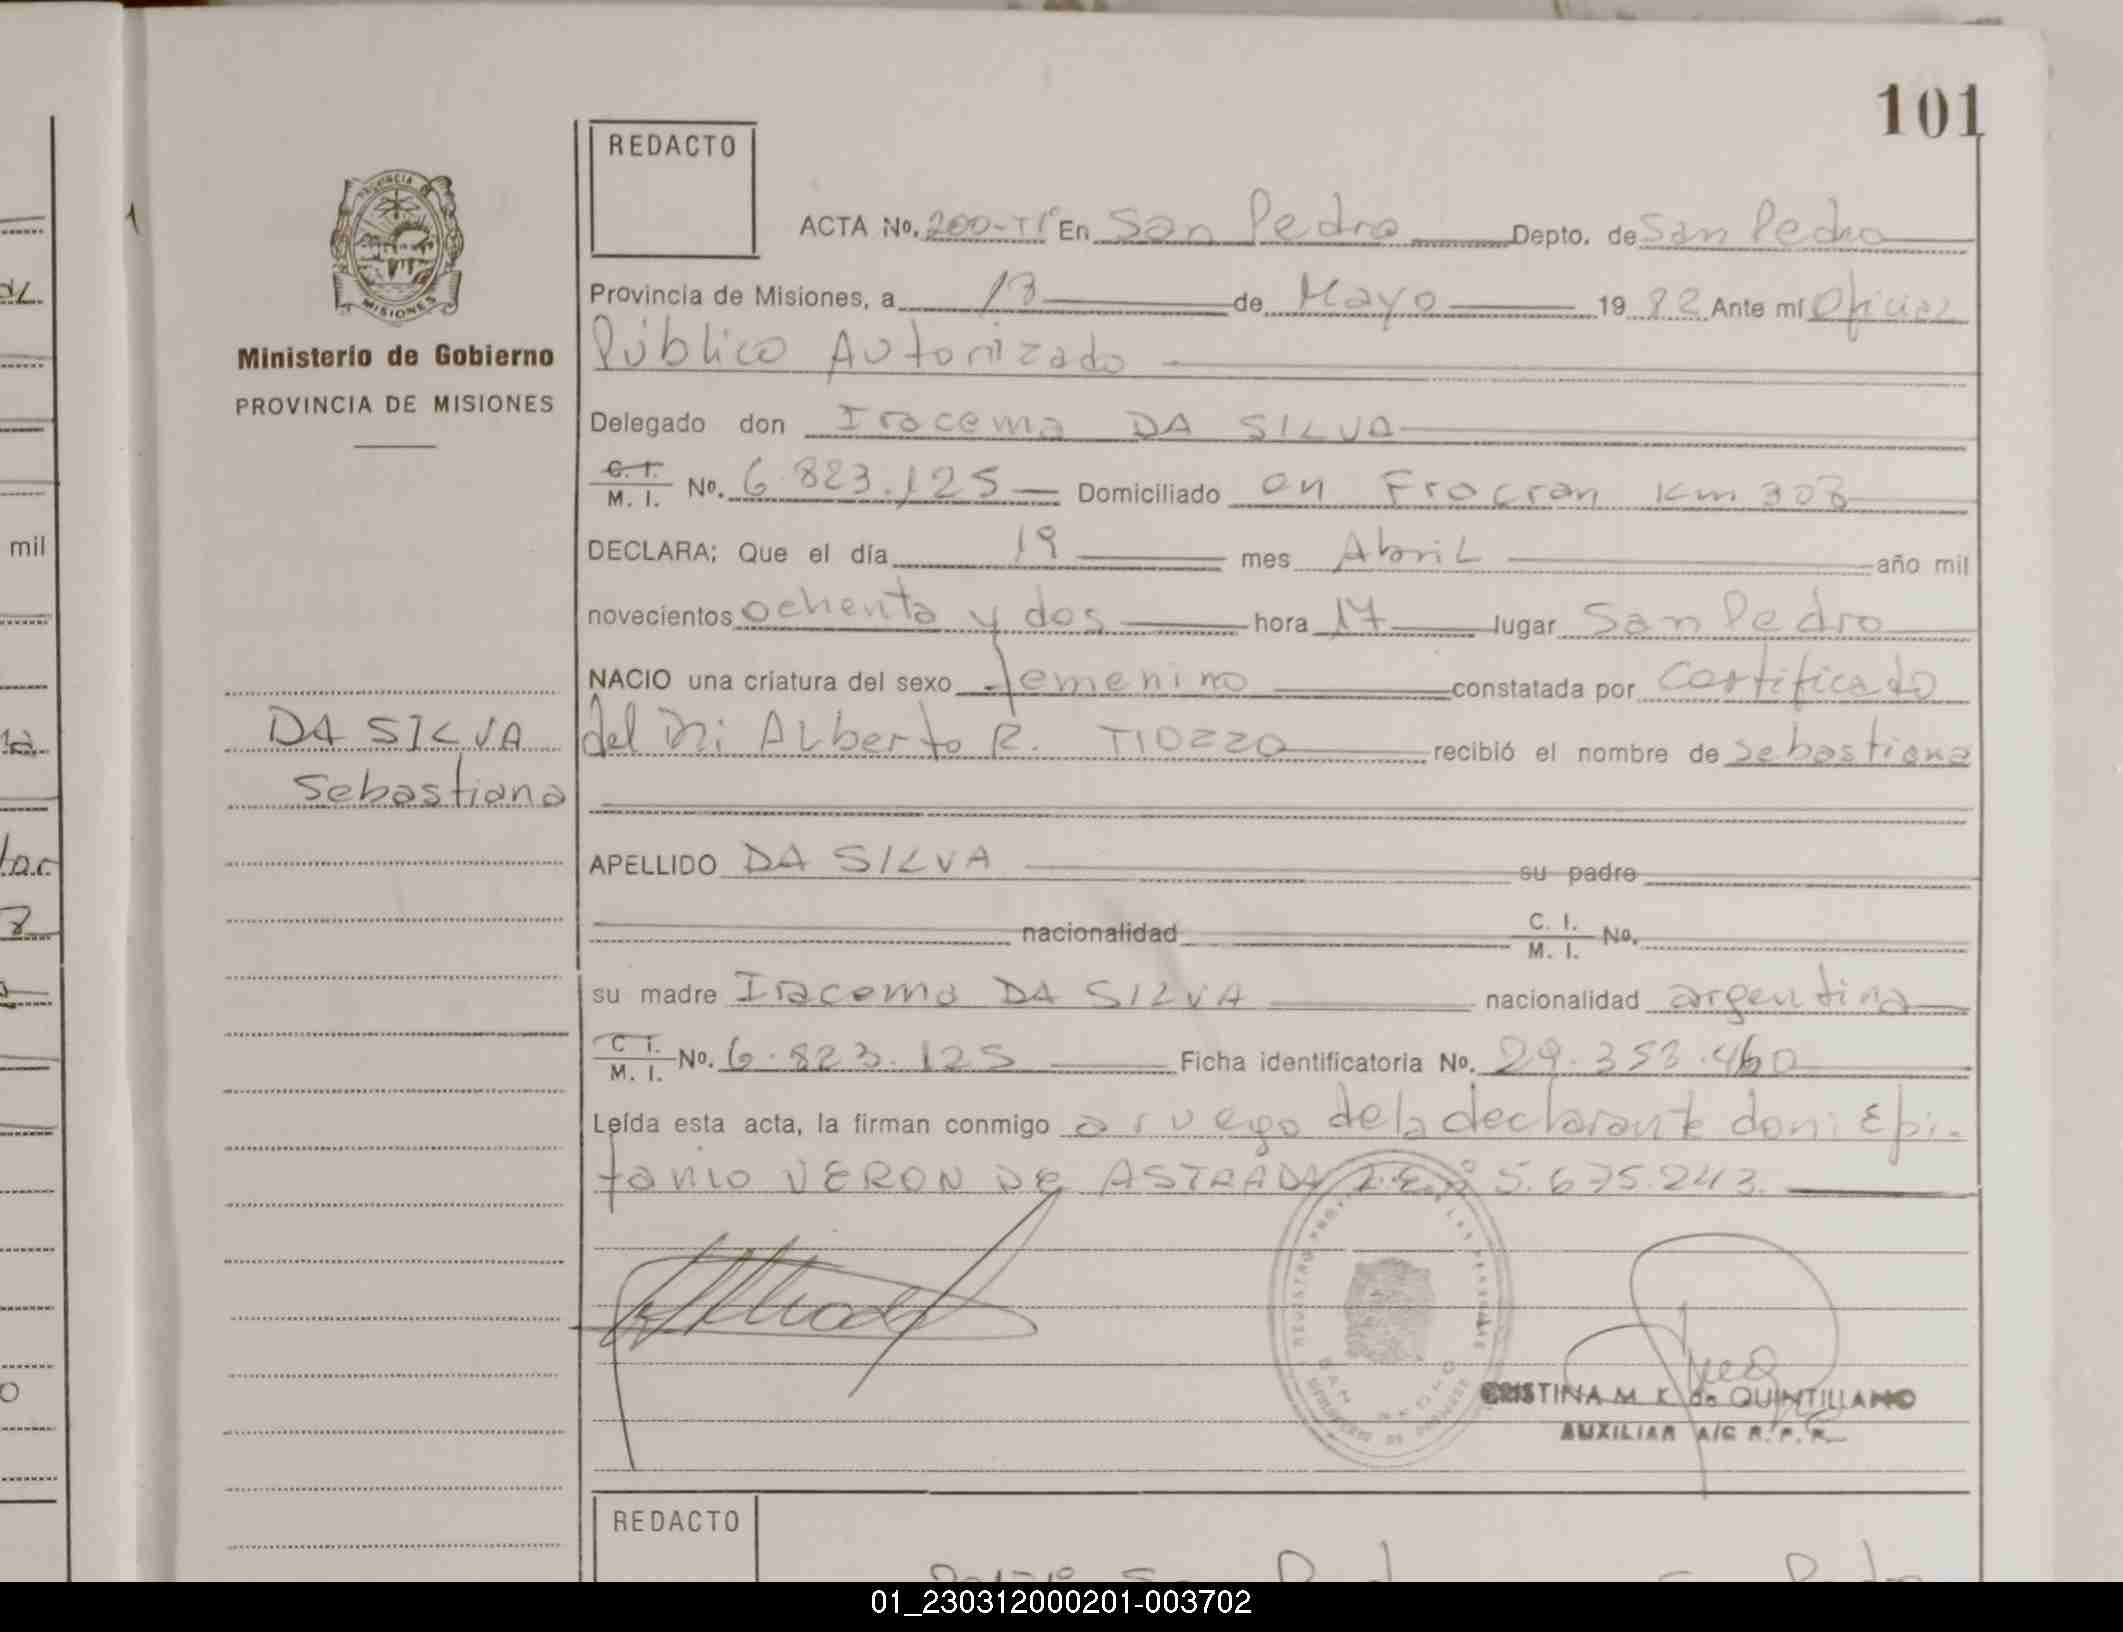 101
REDACTO
ACTA No. 200-T1º En San Pedro Depto. de San Pedro
PROVINCIA DE MISIONES
Provincia de Misiones, a 13 de Mayo 1982 Ante mí Oficial
Público Autorizado
Ministerio de Gobierno
PROVINCIA DE MISIONES
Delegado don Iracema DA SILVA
C. I. M. I. No. 6.823.125 Domiciliado en Frocran Km 303
DECLARA; Que el día 19 mes Abril año mil
novecientos ochenta y dos hora 17 lugar San Pedro
NACIO una criatura del sexo femenino constatada por certificado
DA SILVA
Sebastiana
del Alberto R. TIOZZO recibió el nombre de Sebastiana
APELLIDO DA SILVA su padre
nacionalidad C. I. M. I. No.
su madre Iracema DA SILVA nacionalidad argentina
C. I. M. I. No. 6.823.125 Ficha identificatoria No. 29.353.460
Leída esta acta, la firman conmigo a ruego de la declarante don: Epi-
fanio VERON DE ASTRADA L.E. º 5.675.243.
SAN PEDRO
CRISTINA M. K. de QUINTILLANO
AUXILIAR A/C R. P. P.
REDACTO
mil
01_230312000201-003702